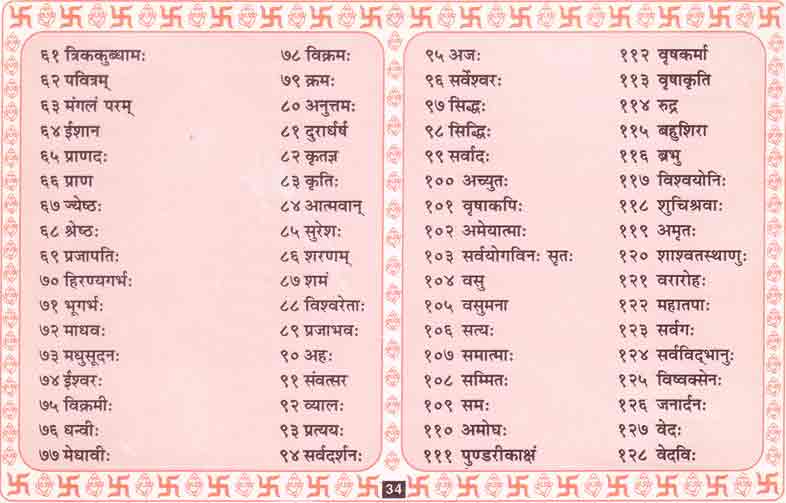 ६१ त्रिककुब्धामः
६२ पवित्रम्
६३ मंगलं परम्
६४ ईशान
६५ प्राणदः
६६ प्राण
६७ ज्येष्ठः
६८ श्रेष्ठः
६९ प्रजापतिः
७० हिरण्यगर्भः
७१ भूगर्भः
७२ माधवः
७३ मधुसूदनः
७४ ईश्वरः
७५ विक्रमीः
७६ धन्वीः
७७ मेधावीः
७८ विक्रमः
७९ क्रमः
८० अनुत्तमः
८१ दुरार्धर्ष
८२ कृतज्ञ
८३ कृतिः
८४ आत्मवान्
८५ सुरेशः
८६ शरणम्
८७ शमं
८८ विश्वरेताः
८९ प्रजाभवः
९० अहः
९१ संवत्सर
९२ व्यालः
९३ प्रत्ययः
९४ सर्वदर्शनः
९५ अजः
९६ सर्वेश्वरः
९७ सिद्धः
९८ सिद्धिः
९९ सर्वादः
१०० अच्युतः
१०१ वृषाकपिः
१०२ अमेयात्माः
१०३ सर्वयोगविनः सृतः
१०४ वसु
१०५ वसुमना
१०६ सत्यः
१०७ समात्माः
१०८ सम्मितः
१०९ समः
११० अमोघः
१११ पुण्डरीकाक्षं
११२ वृषकर्मा
११३ वृषाकृति
११४ रुद्र
११५ बहुशिरा
११६ ब्रभु
११७ विश्वयोनिः
११८ शुचिश्रवाः
११९ अमृतः
१२० शाश्वतस्थाणुः
१२१ वरारोहः
१२२ महातपाः
१२३ सर्वगः
१२४ सर्वविद्भानुः
१२५ विष्वक्सेनः
१२६ जनार्दनः
१२७ वेदः
१२८ वेदविः
34